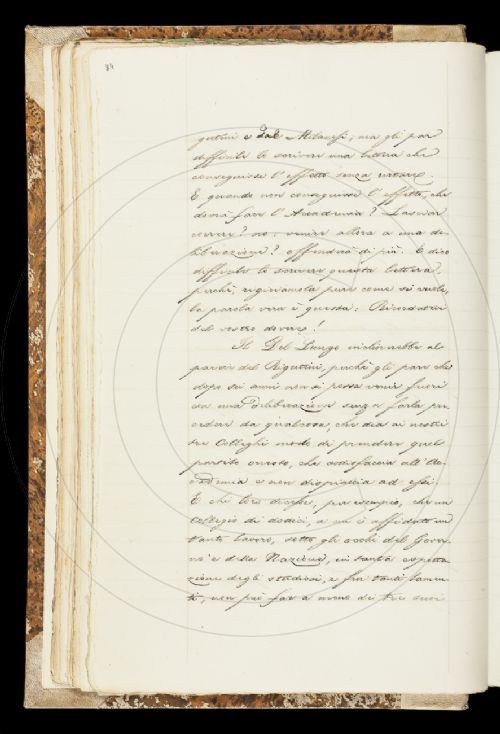 84
gutini e dal Milanesi; ma gli par
difficile lo scrivere una lettera che
conseguisse l'effetto senza irritare.
E quando non conseguisse l'effetto, che
dovrà fare l'Accademia? Lasciar
correre? no: venire allora a una de-
liberazione? offenderà di più. E dico
difficile lo scrivere questa lettera,
perchè, rigiriamola pure come si vuole,
la parola vera è questa: Ricordatevi
del vostro dovere!
Il Del Lungo inclinerebbe al
parere del Rigutini, perchè gli pare che
dopo sei anni non si possa venir fuori
con una deliberazione senza farla pre-
cedere da qualcosa, che dia ai nostri
tre Colleghi modo di prendere quel
partito onesto, che soddisfaccia all'Ac-
cademia e non dispiaccia ad essi.
E che loro dicesse, per esempio, che un
Collegio di dodici, a cui è affidato un
tanto lavoro, sotto gli occhi del Gover-
no e della Nazione, in tanta espetta-
zione degli studiosi, e fra tanti lamen-
ti, non può far a meno di tre suoi